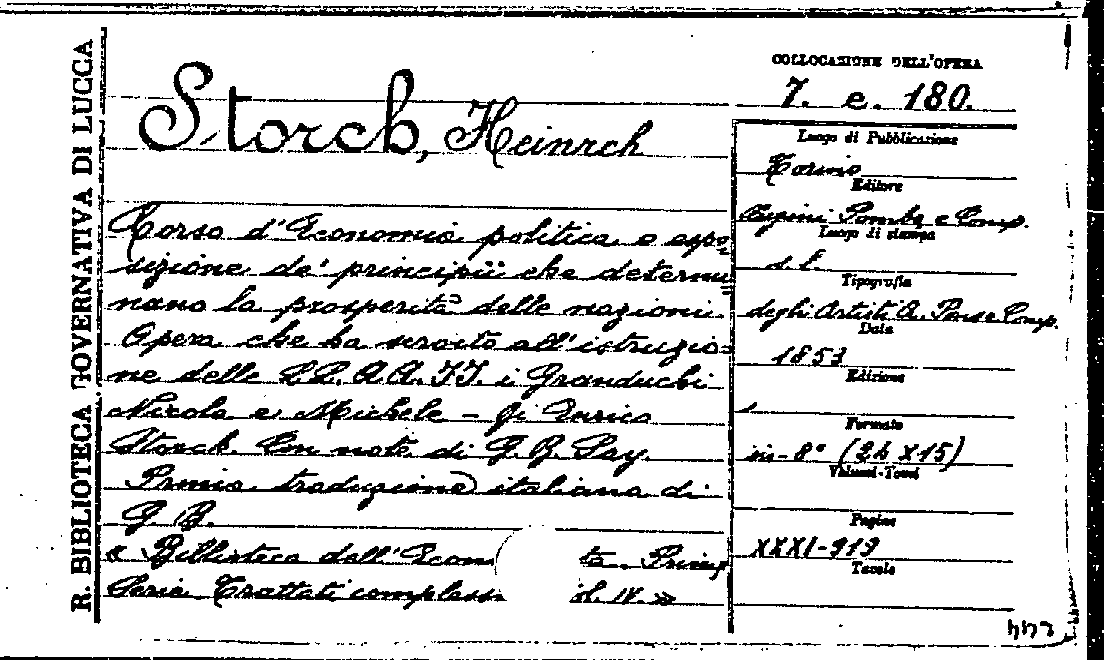 R. BIBLIOTECA GOVERNATIVA DI LUCCA
Storch, Heinrch
Corso d'Economia politica o espo=
sizione de' principii che determi=
nano la prosperità delle nazioni.
Opera che ha servito all'istruzio=
ne delle LL. AA. II. i Granduchi
Nicola e Michele - di Enrico
Storch. Con note di G. B. Say.
Prima traduzione italiana di
G. B.
« Biblioteca dell'Econ ta. Prima
Serie Trattati complessi ol. IV. »
COLLOCAZIONE DELL'OPERA
7. e. 180.
Luogo di Pubblicazione
Torino
Editore
Cugini Pomba e Comp.
Luogo di stampa
s. l.
Tipografia
degli Artisti A. Pons e Comp.
Data
1853
Edizione
Formato
in-8° (24 X 15)
Volumi-Tomi
Pagine
XXXI-919
Tavole